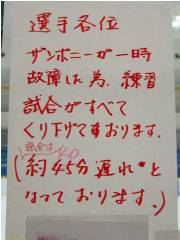 選手各位
ザンボニーが一時
故障した為、練習
試合がすべて
くり下げております。
試合は40
(約45分遅れと
なっております。)